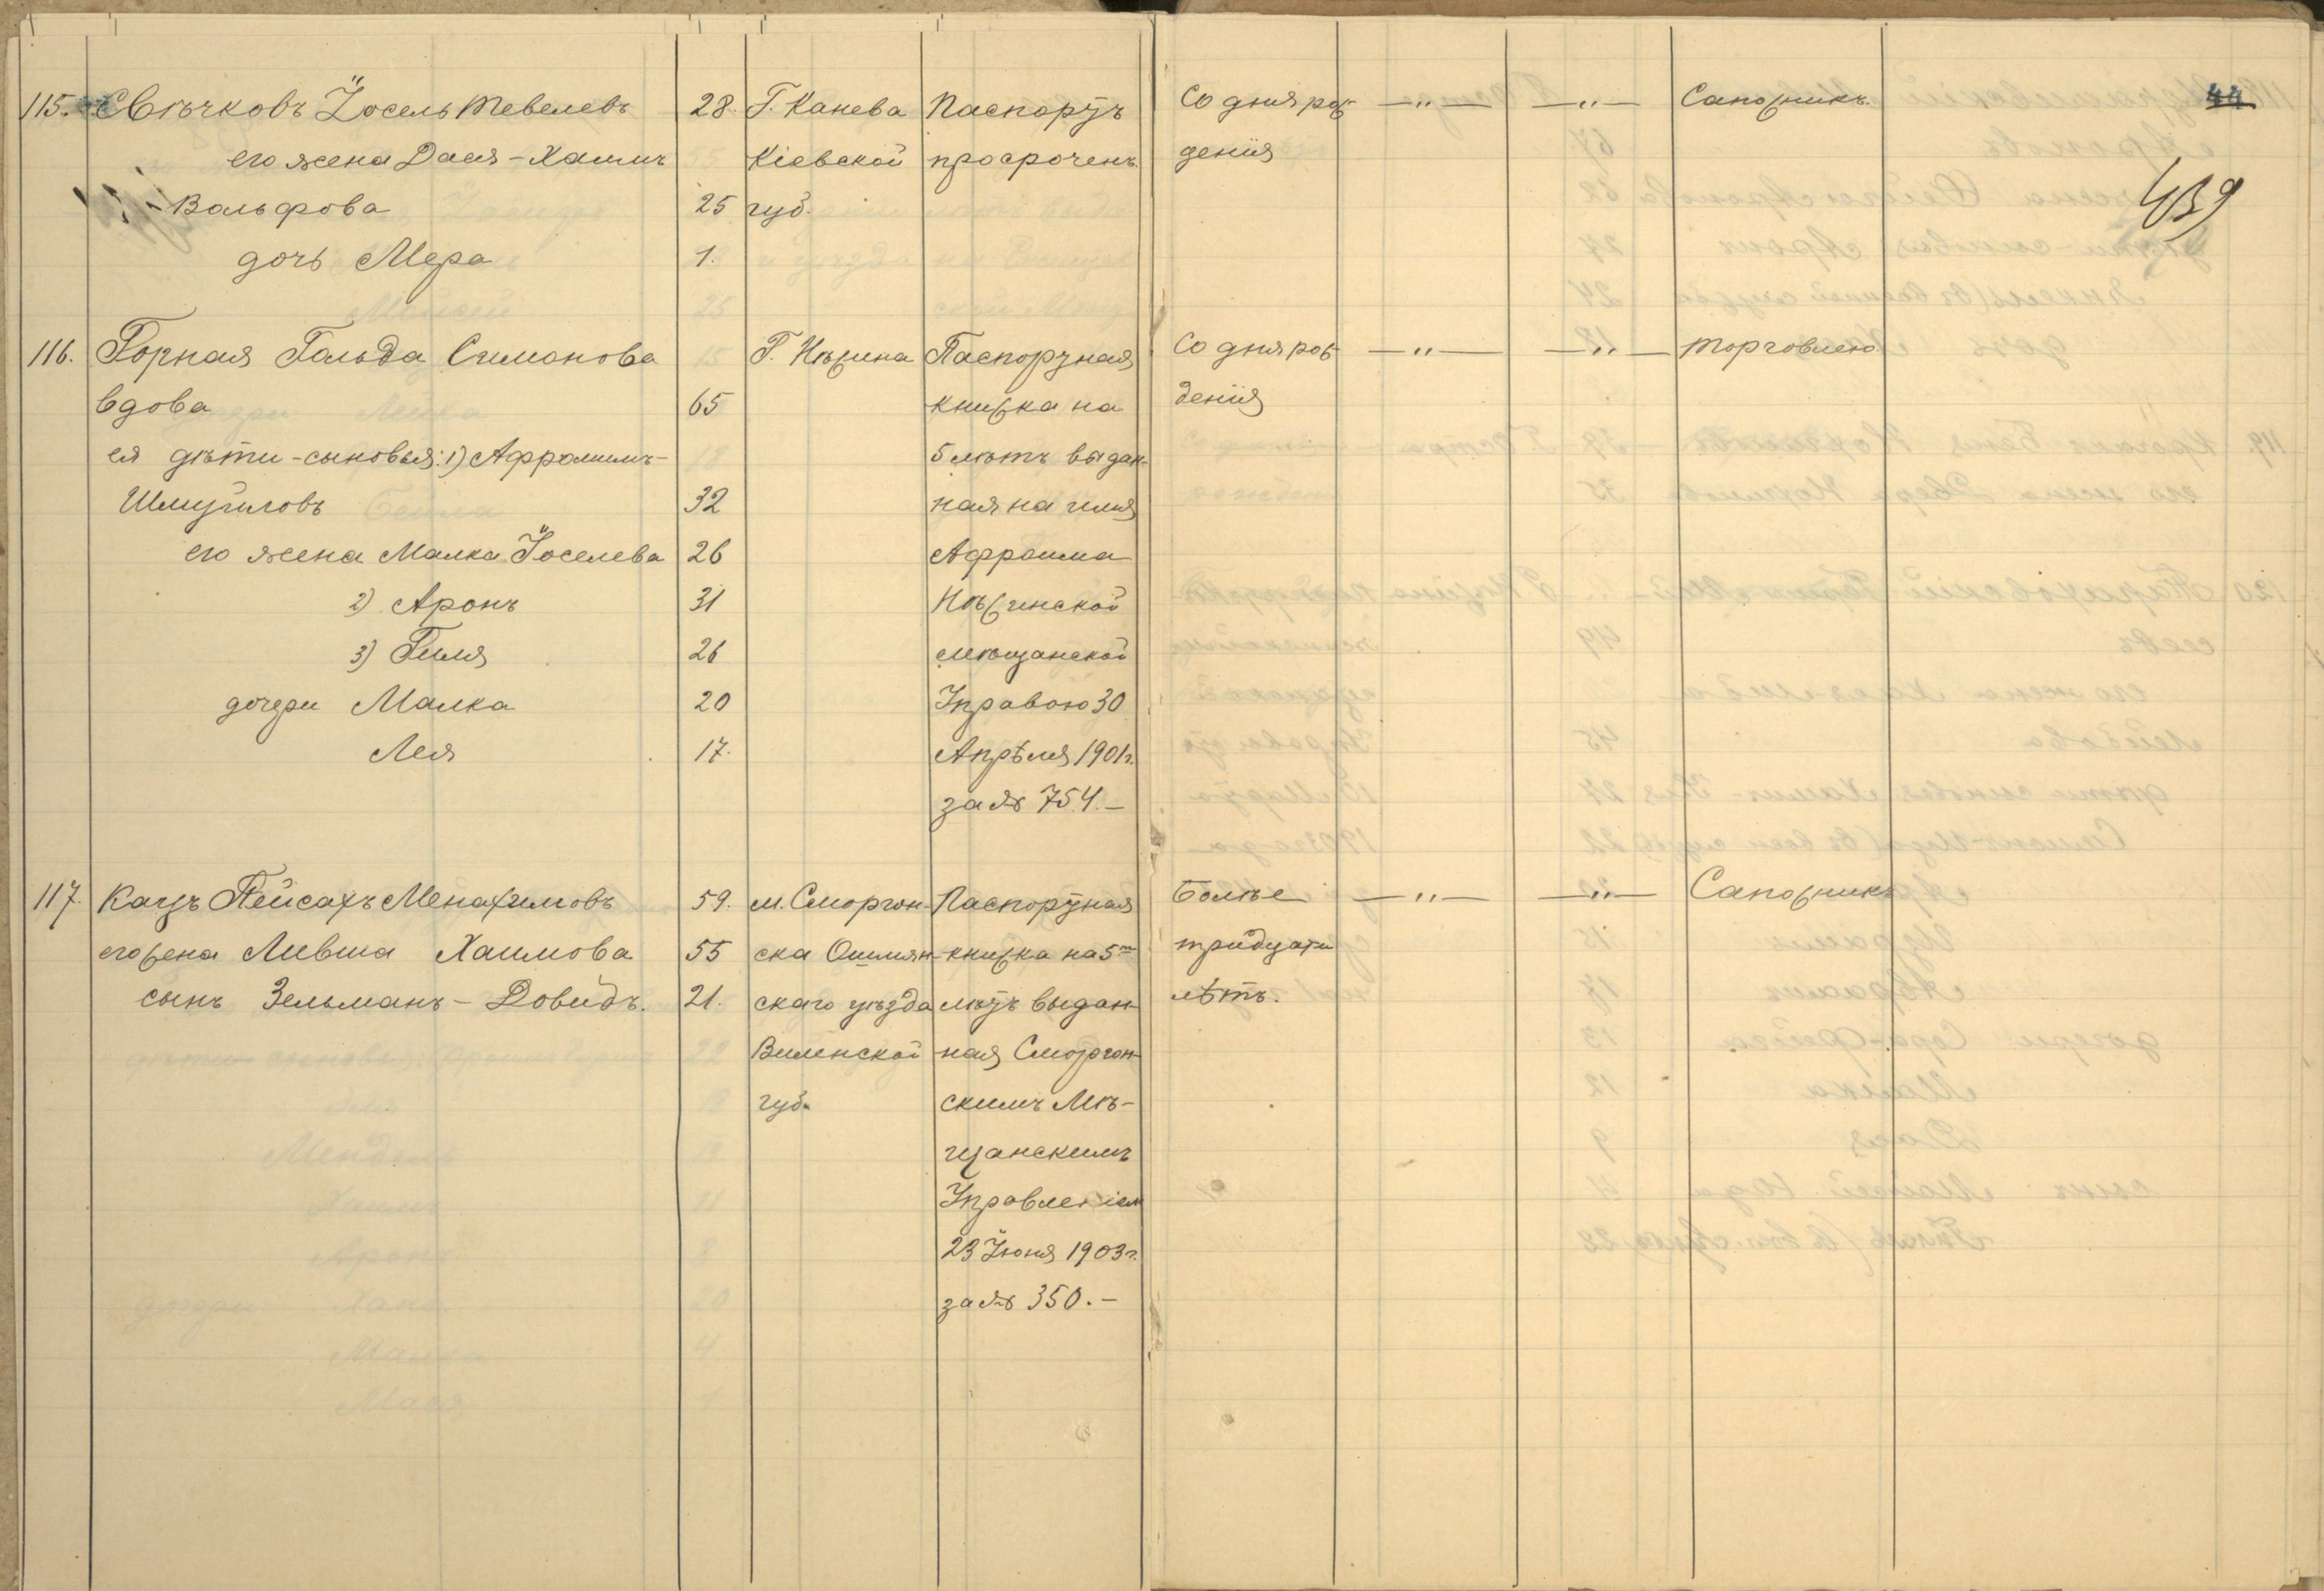 44
439
115. Свѣчковъ Іосель Тевелевъ 28. Г. Канева Паспортъ Со дня рож- —"— —"— Сапожникъ.
его жена Дася-Хаимъ Кіевской просроченъ. денія
Вольфова 25 губ.
дочь Мера 1.
116. Горная Гольда Симонова Г. Нѣжина Паспортная Со дня рож- —"— —"— торговлею.
вдова 65 книжка на денія
ея дѣти-сыновья: 1) Афроимъ- 5 лѣтъ выдан-
Шмуиловъ 32 ная на имя
его жена Малка Іоселева 26 Афроима
2) Аронъ 31 Нѣжинской
3) Гиля 26 мѣщанской
дочери Малка 20 Управою 30
Лея 17. Апрѣля 1901 г.
за № 754.—
117. Кацъ Пейсахъ Менахимовъ 59. м. Сморгон- Паспортная Болѣе —"— —"— Сапожникъ
его жена Ливша Хаимова 55 ска Ошмян- книжка на 5ть тридцати
сынъ Зельманъ-Довидъ. 21. скаго уѣзда лѣтъ выдан- лѣтъ.
Виленской ная Сморгон-
губ. скимъ Мѣ-
щанскимъ
Управленіем
23 Іюня 1903 г.
за № 350.—